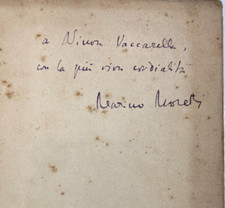 a Ninon Vaccarella,
con la più viva cordialità
Marino Moretti